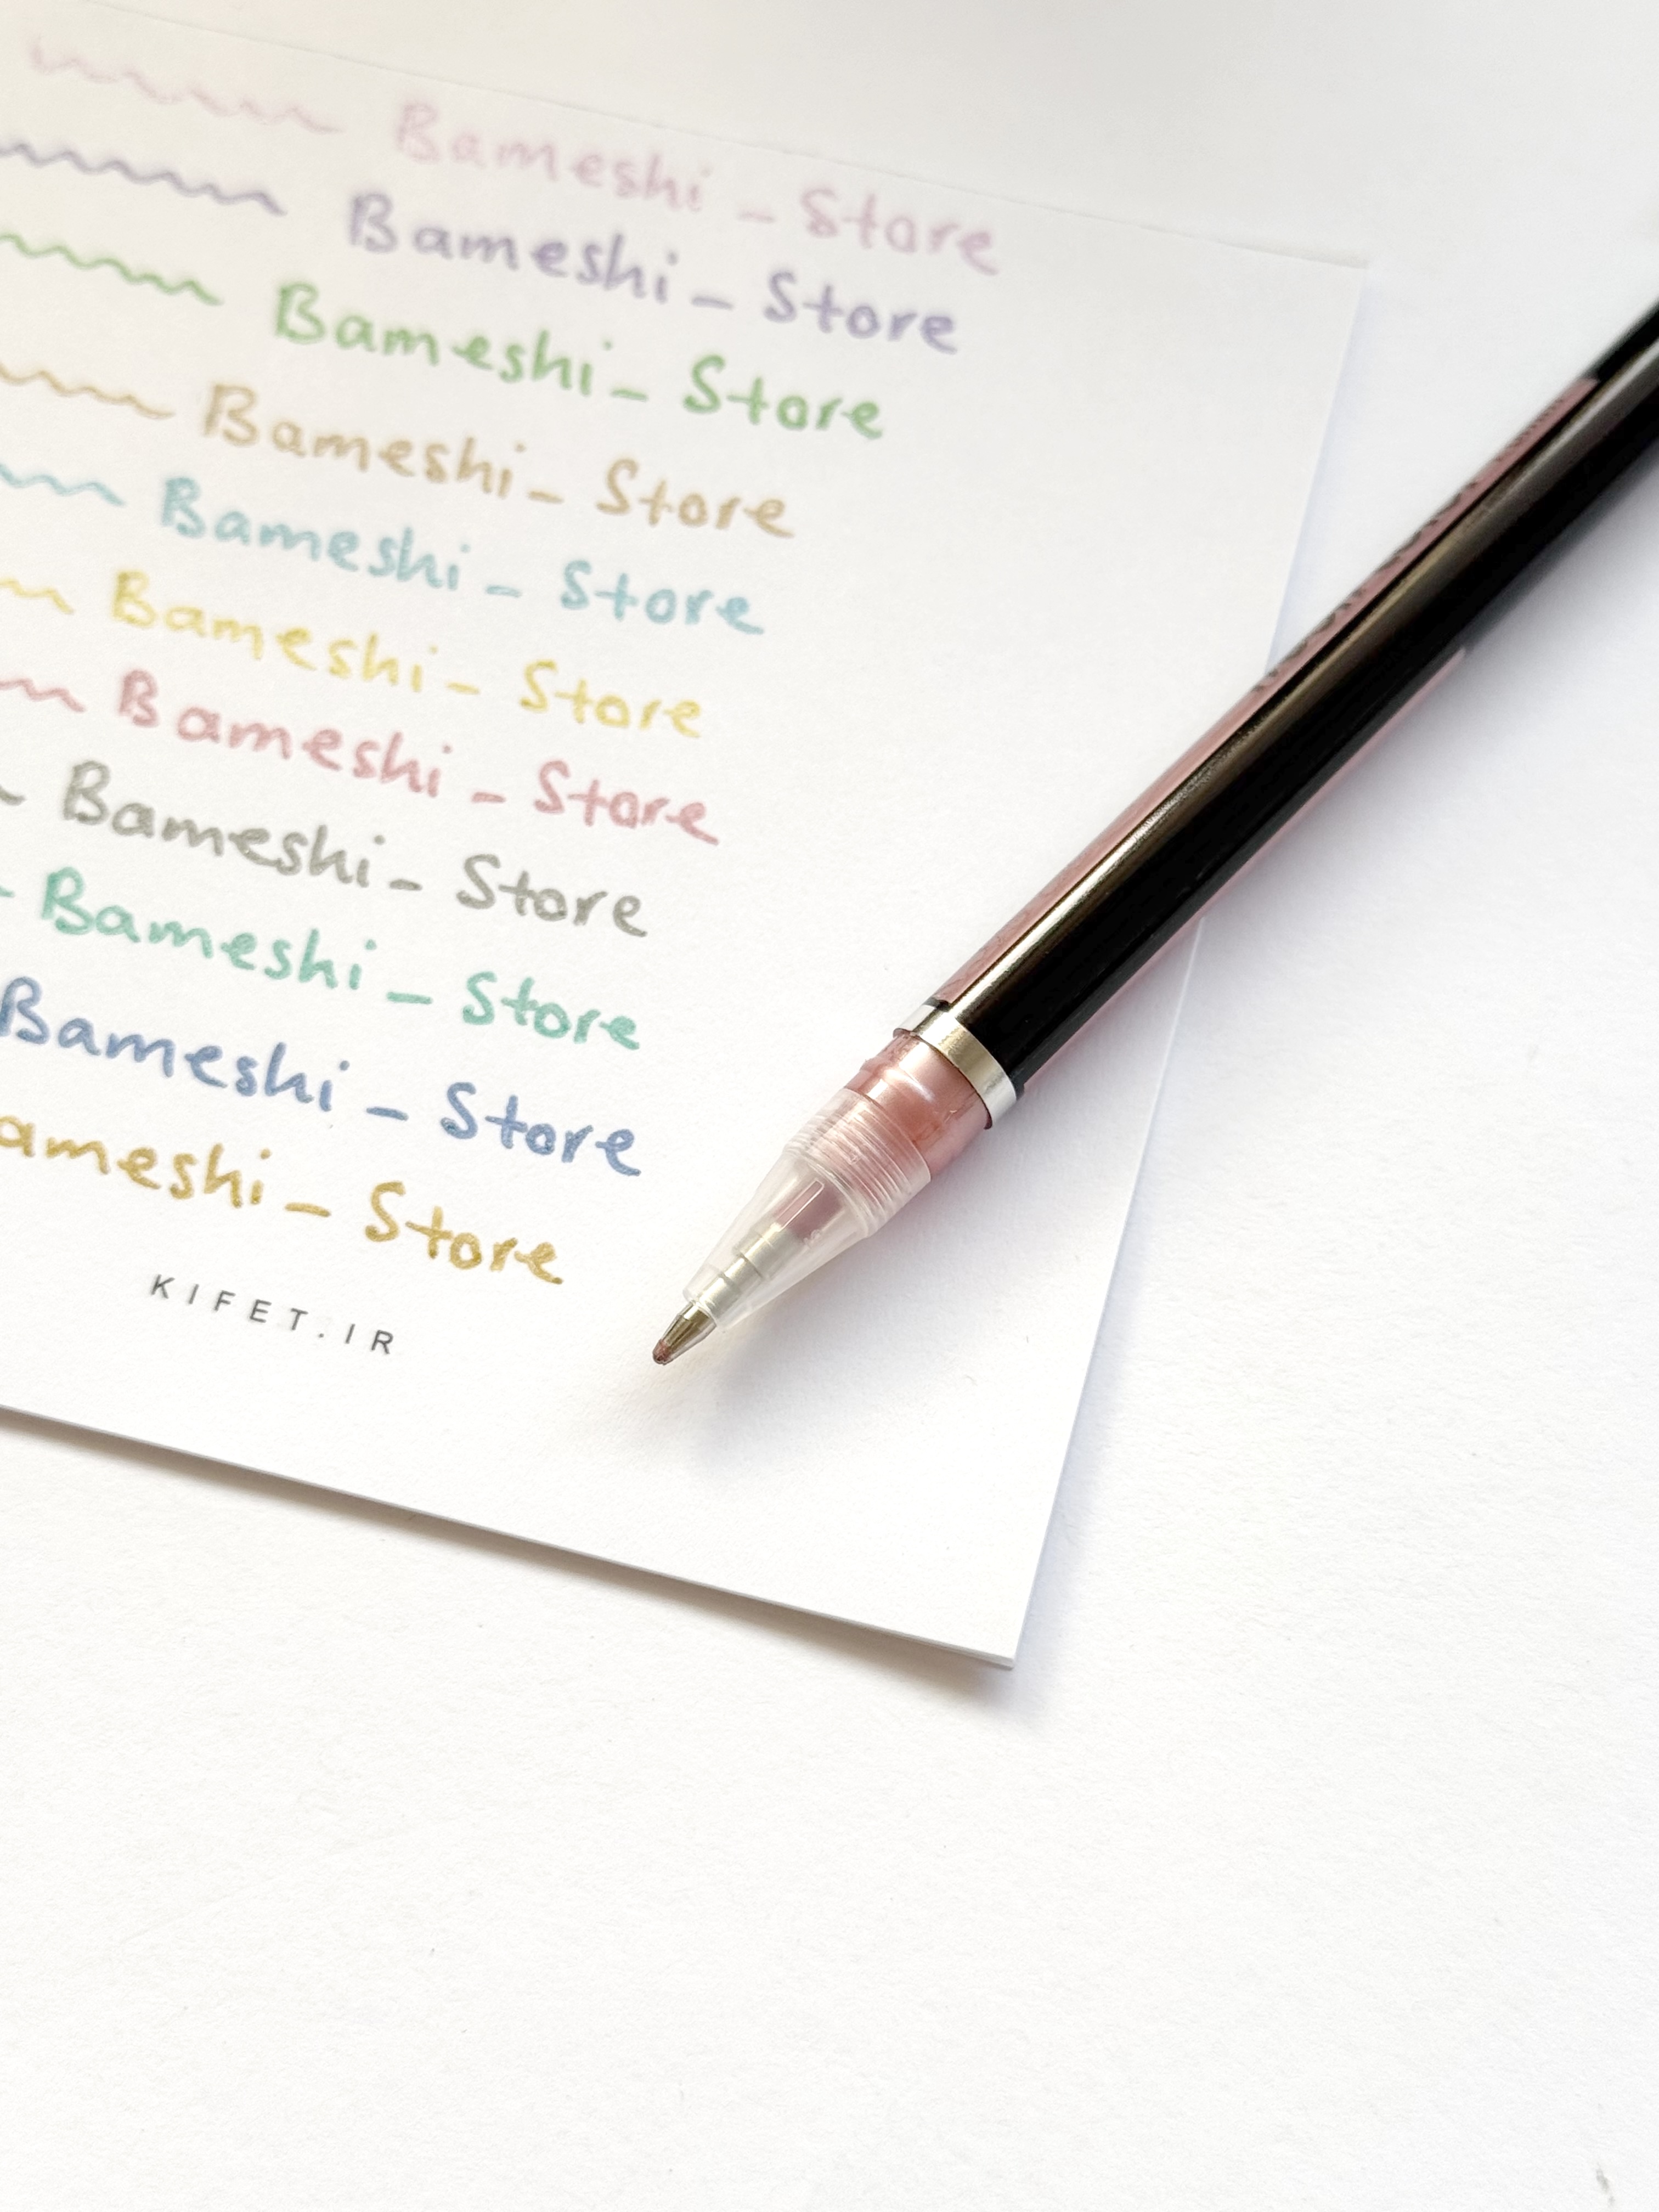 Bameshi - Store
Bameshi - Store
Bameshi - Store
Bameshi - Store
Bameshi - Store
Bameshi - Store
Bameshi - Store
Bameshi - Store
Bameshi - Store
Bameshi - Store
ameshi - Store
KIFET.IR